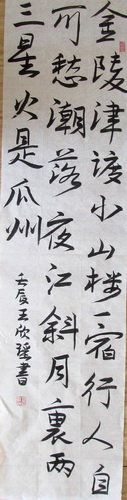 金陵津渡小山楼一宿行人自
可愁潮落夜江斜月裏兩
三星火是瓜州
壬辰王欣瑶書